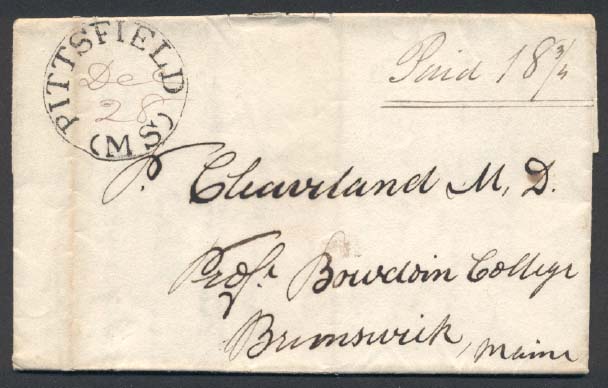 PITTSFIELD
Dec
28
(MS)
Paid 18 3/4
P. Cleaveland M. D.
Profr. Bowdoin College
Brunswick, Maine